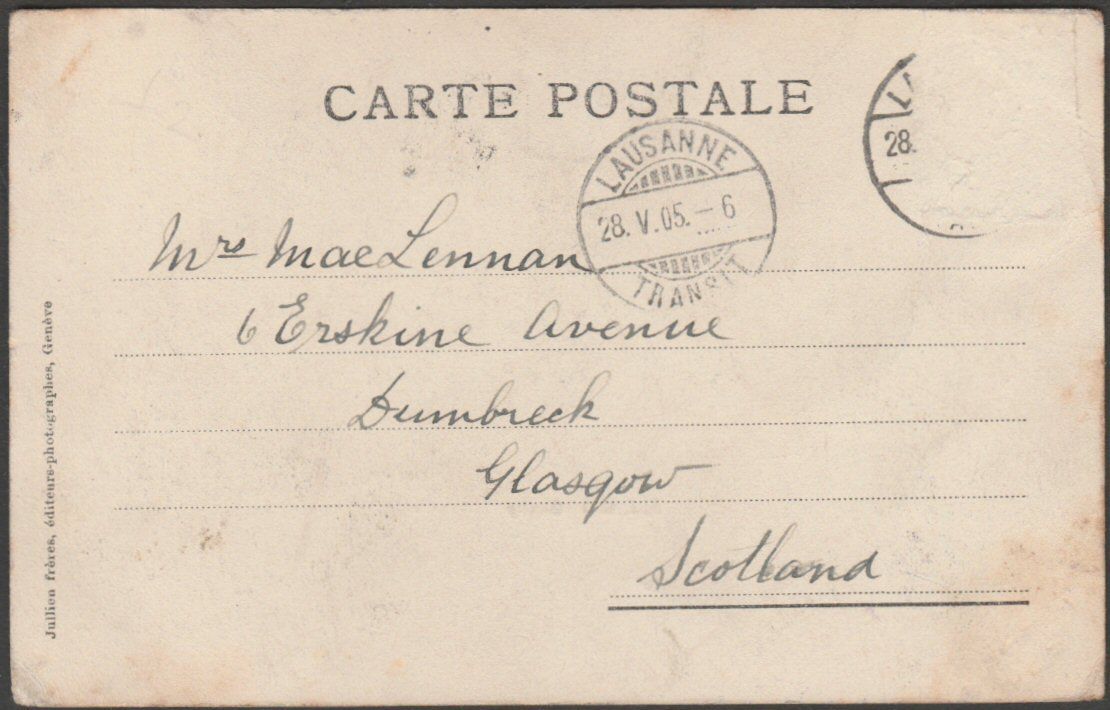 CARTE POSTALE
LAUSANNE
28. V. 05. – 6
TRANSIT
28.
Mrs MacLennan
6 Erskine Avenue
Dumbreck
Glasgow
Scotland
Jullien frères, éditeurs-photographes, Genève